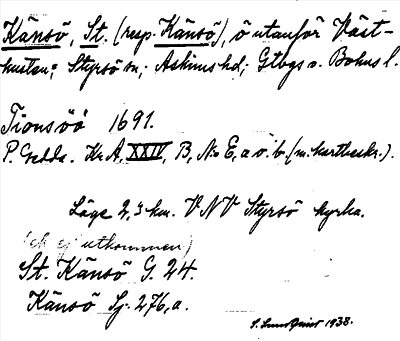 Känsö, St. (resp. Känsö), ö utanför Väst-
kusten; Styrsö sn; Askims hd; Gtbgs o. Bohus l.
Tionsöö 1691.
P. Gedda. Kr. A, XXIV, B, No E, a o. b. (m. kartbeskr.).
Läge 2,3 km. VNV Styrsö kyrka.
(ek ej utkommen)
St. Känsö G. 24.
Känsö Sj. 276, a.
S. Sundquist 1938.